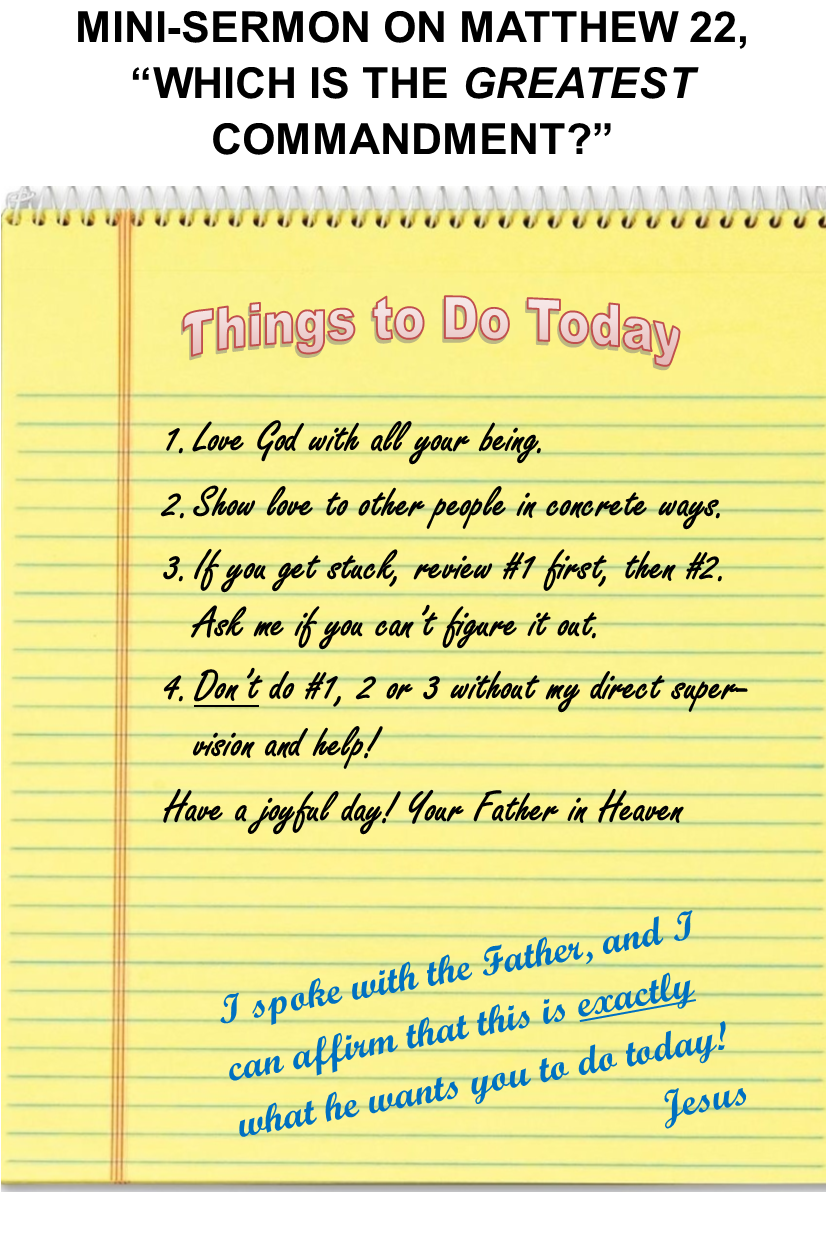 MINI-SERMON ON MATTHEW 22,
“WHICH IS THE GREATEST
COMMANDMENT?”
Things to Do Today
1. Love God with all your being.
2. Show love to other people in concrete ways.
3. If you get stuck, review #1 first, then #2.
Ask me if you can’t figure it out.
4. Don’t do #1, 2 or 3 without my direct super-
vision and help!
Have a joyful day! Your Father in Heaven
I spoke with the Father, and I
can affirm that this is exactly
what he wants you to do today!
Jesus